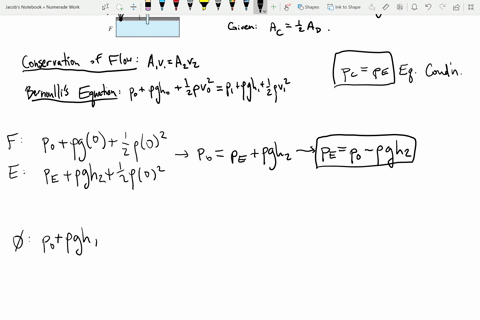 Jacob's Notebook » Numerade Work
Shapes
Ink to Shape
F
Given: A_C = ½ A_D.
Conservation of Flow: A₁v₁ = A₂v₂
p_C = p_E Eq. Cond'n.
Bernoulli's Equation: p₀ + ρgh₀ + ½ρv₀² = p₁ + ρgh₁ + ½ρv₁²
F: p₀ + ρg(0) + ½ρ(0)²
→ p₀ = p_E + ρgh₂ → p_E = p₀ − ρgh₂
E: p_E + ρgh₂ + ½ρ(0)²
Ø: p₀ + ρgh₁